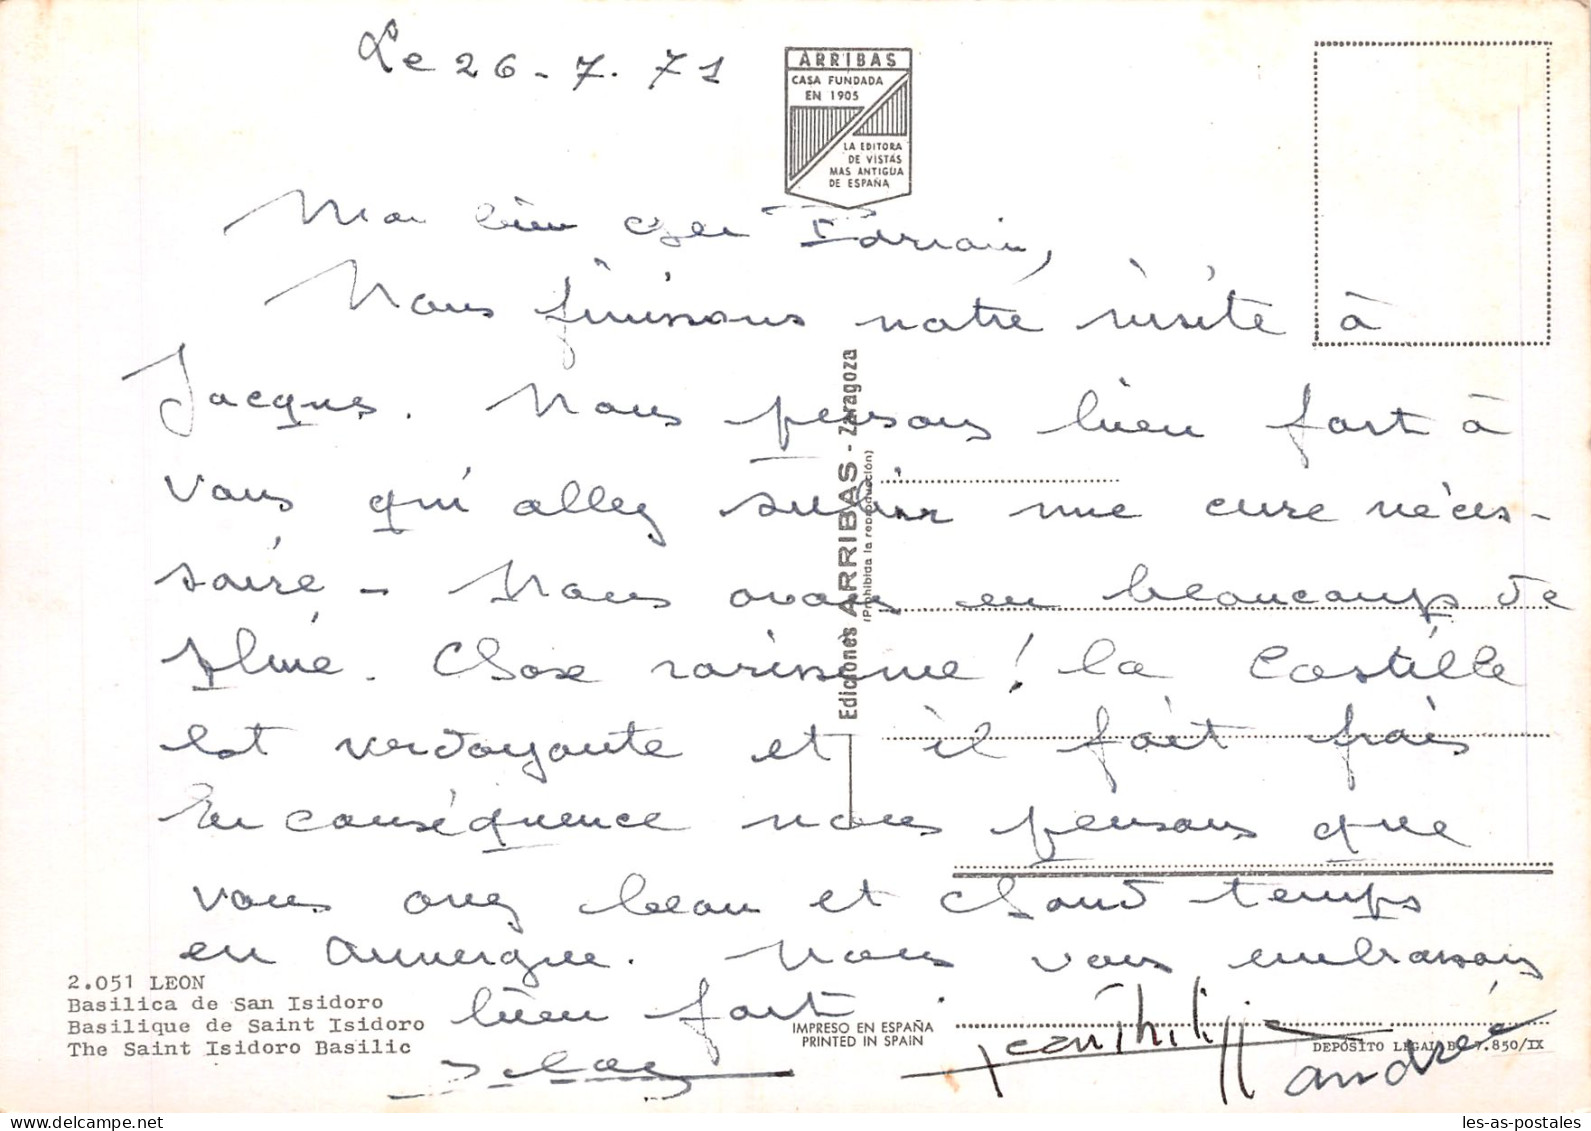 Le 26-7.71
ARRIBAS
CASA FUNDADA
EN 1905
LA EDITORA
DE VISTAS
MAS ANTIGUA
DE ESPAÑA
Mon bien cher
Nous finissons notre visite à
Jacques. Nous pensons bien fort à
vous qui allez subir une cure néces-
saire - Nous avons eu beaucoup de
pluie. Chose rarissime! la Castille
est verdoyante et il fait frais
En conséquence nous pensons que
vous avez beau et chaud temps
en Auvergne. Nous vous embrassons
bien fort.
Jean Philippe
Andrée
Ediciones ARRIBAS - Zaragoza
(Prohibida la reproducción)
2.051 LEON
Basilica de San Isidoro
Basilique de Saint Isidoro
The Saint Isidoro Basilic
IMPRESO EN ESPAÑA
PRINTED IN SPAIN
DEPÓSITO LEGAL B. 7.850/IX
les-as-postales
delcampe.net